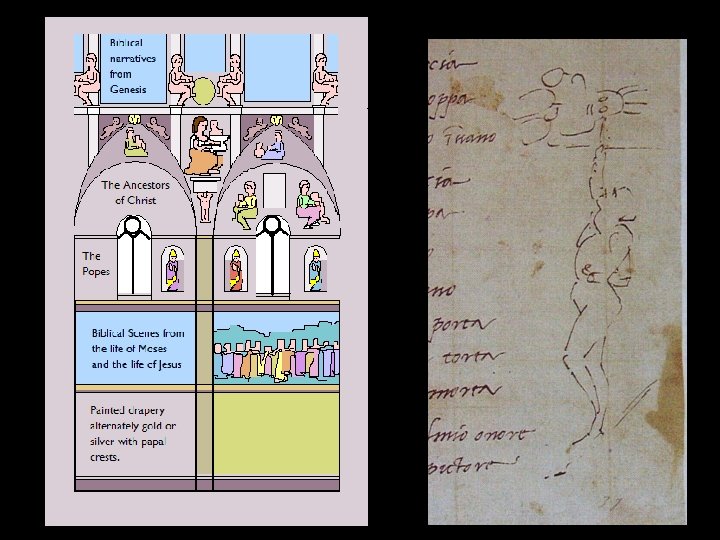 Biblical
narratives
from
Genesis
The Ancestors
of Christ
The
Popes
Biblical Scenes from
the life of Moses
and the life of Jesus
Painted drapery
alternately gold or
silver with papal
crests.
oppa
porta
torta
morta
mio onore
pictore